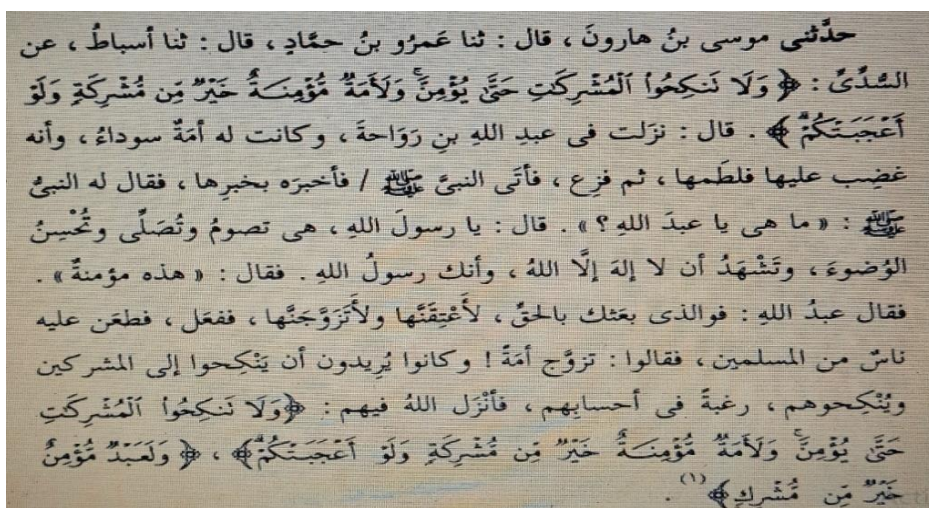 حدَّثنى موسى بنُ هارونَ ، قال : ثنا عَمرُو بنُ حمَّادٍ ، قال : ثنا أسباطُ ، عن
السُّدِّىِّ : ﴿ وَلَا نَنكِحُوا۟ ٱلْمُشْرِكَٰتِ حَتَّىٰ يُؤْمِنَّ ۚ وَلَأَمَةٌ مُّؤْمِنَةٌ خَيْرٌ مِّن مُّشْرِكَةٍ وَلَوْ
أَعْجَبَتْكُمْ ﴾ . قال : نزَلت فى عبدِ اللهِ بنِ رَوَاحةَ ، وكانت له أمَةٌ سوداءُ ، وأنه
غضِب عليها فلطَمها ، ثم فزِع ، فأتَى النبىَّ ﷺ / فأخبرَه بخبرِها ، فقال له النبىُّ
ﷺ : « ما هى يا عبدَ اللهِ ؟ » . قال : يا رسولَ اللهِ ، هى تصومُ وتُصَلِّى وتُحْسِنُ
الوُضوءَ ، وتَشْهَدُ أن لا إلهَ إلَّا اللهُ ، وأنك رسولُ اللهِ . فقال : « هذه مؤمنةٌ » .
فقال عبدُ اللهِ : فوالذى بعَثك بالحقِّ ، لأُعْتِقَنَّها ولأَتَزَوَّجَنَّها ، ففعَل ، فطعَن عليه
ناسٌ من المسلمين ، فقالوا : تزوَّج أمَةً ! وكانوا يُرِيدون أن يَنْكِحوا إلى المشركين
ويُنْكِحوهم ، رغبةً فى أحسابِهم ، فأنْزَل اللهُ فيهم : ﴿وَلَا نَنكِحُوا۟ ٱلْمُشْرِكَٰتِ
حَتَّىٰ يُؤْمِنَّ ۚ وَلَأَمَةٌ مُّؤْمِنَةٌ خَيْرٌ مِّن مُّشْرِكَةٍ وَلَوْ أَعْجَبَتْكُمْ﴾ ، ﴿ وَلَعَبْدٌ مُّؤْمِنٌ
خَيْرٌ مِّن مُّشْرِكٍ﴾ (١) .